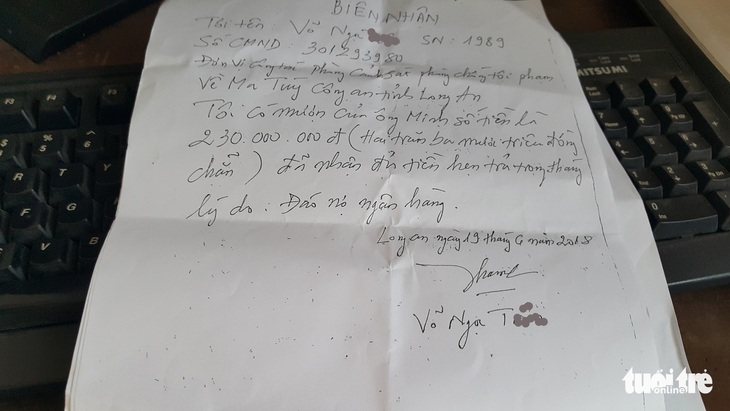 BIÊN NHẬN
Tôi tên : Võ Ngọc SN : 1989
Số CMND : 301393980
Đơn vị công tác Phòng Cảnh sát phòng chống tội phạm
Về Ma Túy Công an tỉnh Long An
Tôi có mượn của ông Minh số tiền là
230.000.000đ (Hai trăm ba mươi triệu đồng
chẵn) đã nhận đủ tiền hẹn trả trong tháng
lý do : Đáo nợ ngân hàng.
Long an ngày 19 tháng 6 năm 2018
Võ Ngọc T
MITSUMI
tuổi trẻ
online